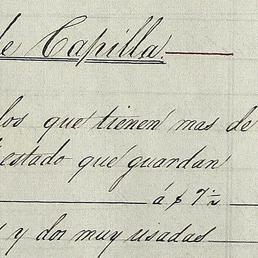 de Capilla.
los que tienen mas de
estado que guardan
á $ 7 1/2
y dos muy usadas